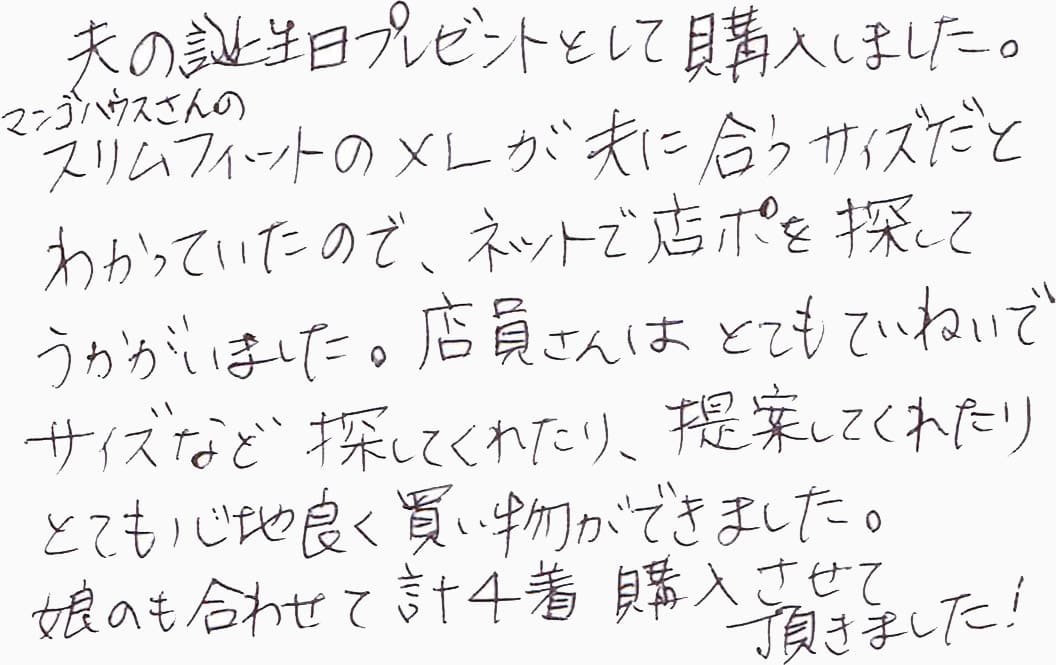 夫の誕生日プレゼントとして購入しました。
マンゴハウスさんの
スリムフィットのXLが夫に合うサイズだと
わかっていたので、ネットで店ポを探して
うかがいました。店員さんはとてもていねいで
サイズなど探してくれたり、提案してくれたり
とても心地良く買い物ができました。
娘のも合わせて計4着購入させて
頂きました！